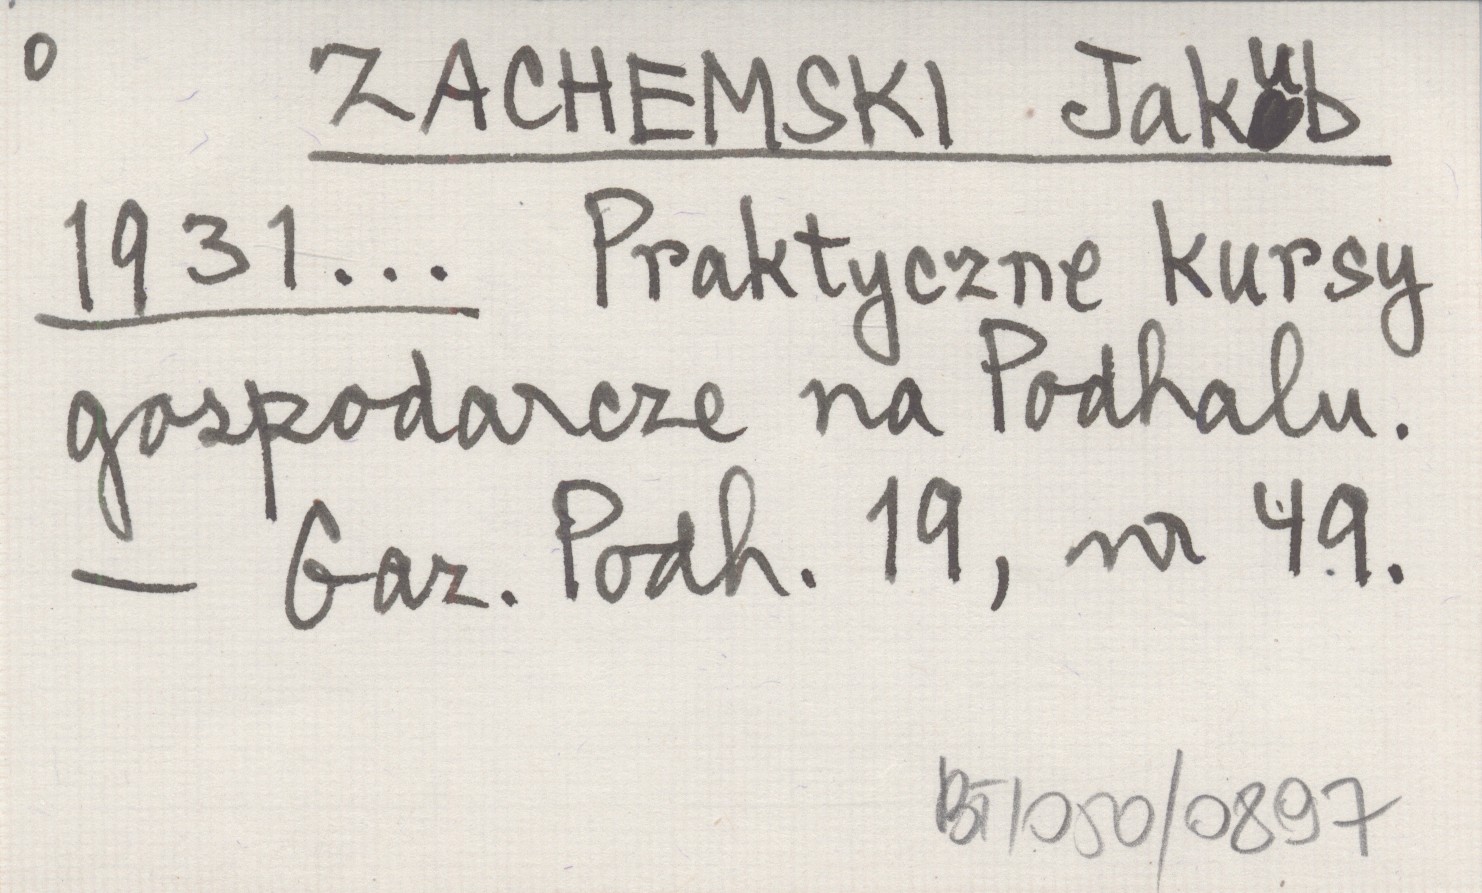 0 ZACHEMSKI Jakub
1931... Praktyczne kursy
gospodarcze na Podhalu.
— Gaz. Podh. 19, nr 49.
BT/050/0897